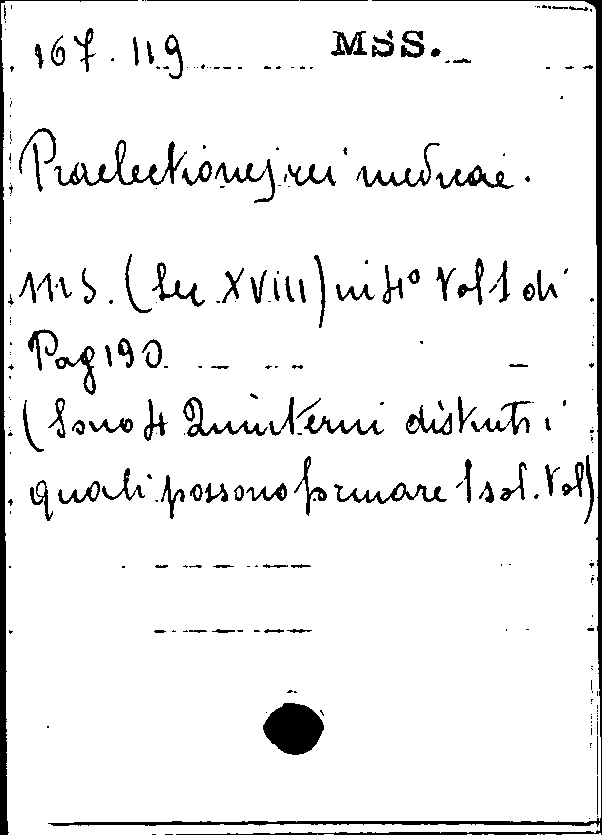 167.119 MSS.
Praelectiones rei medicae.
MS. (Sec XVIII) in 4º Vol 1 di
Pag 190
(Sono 4 Quinterni distinti i
quali possono formare 1 sol. Vol)